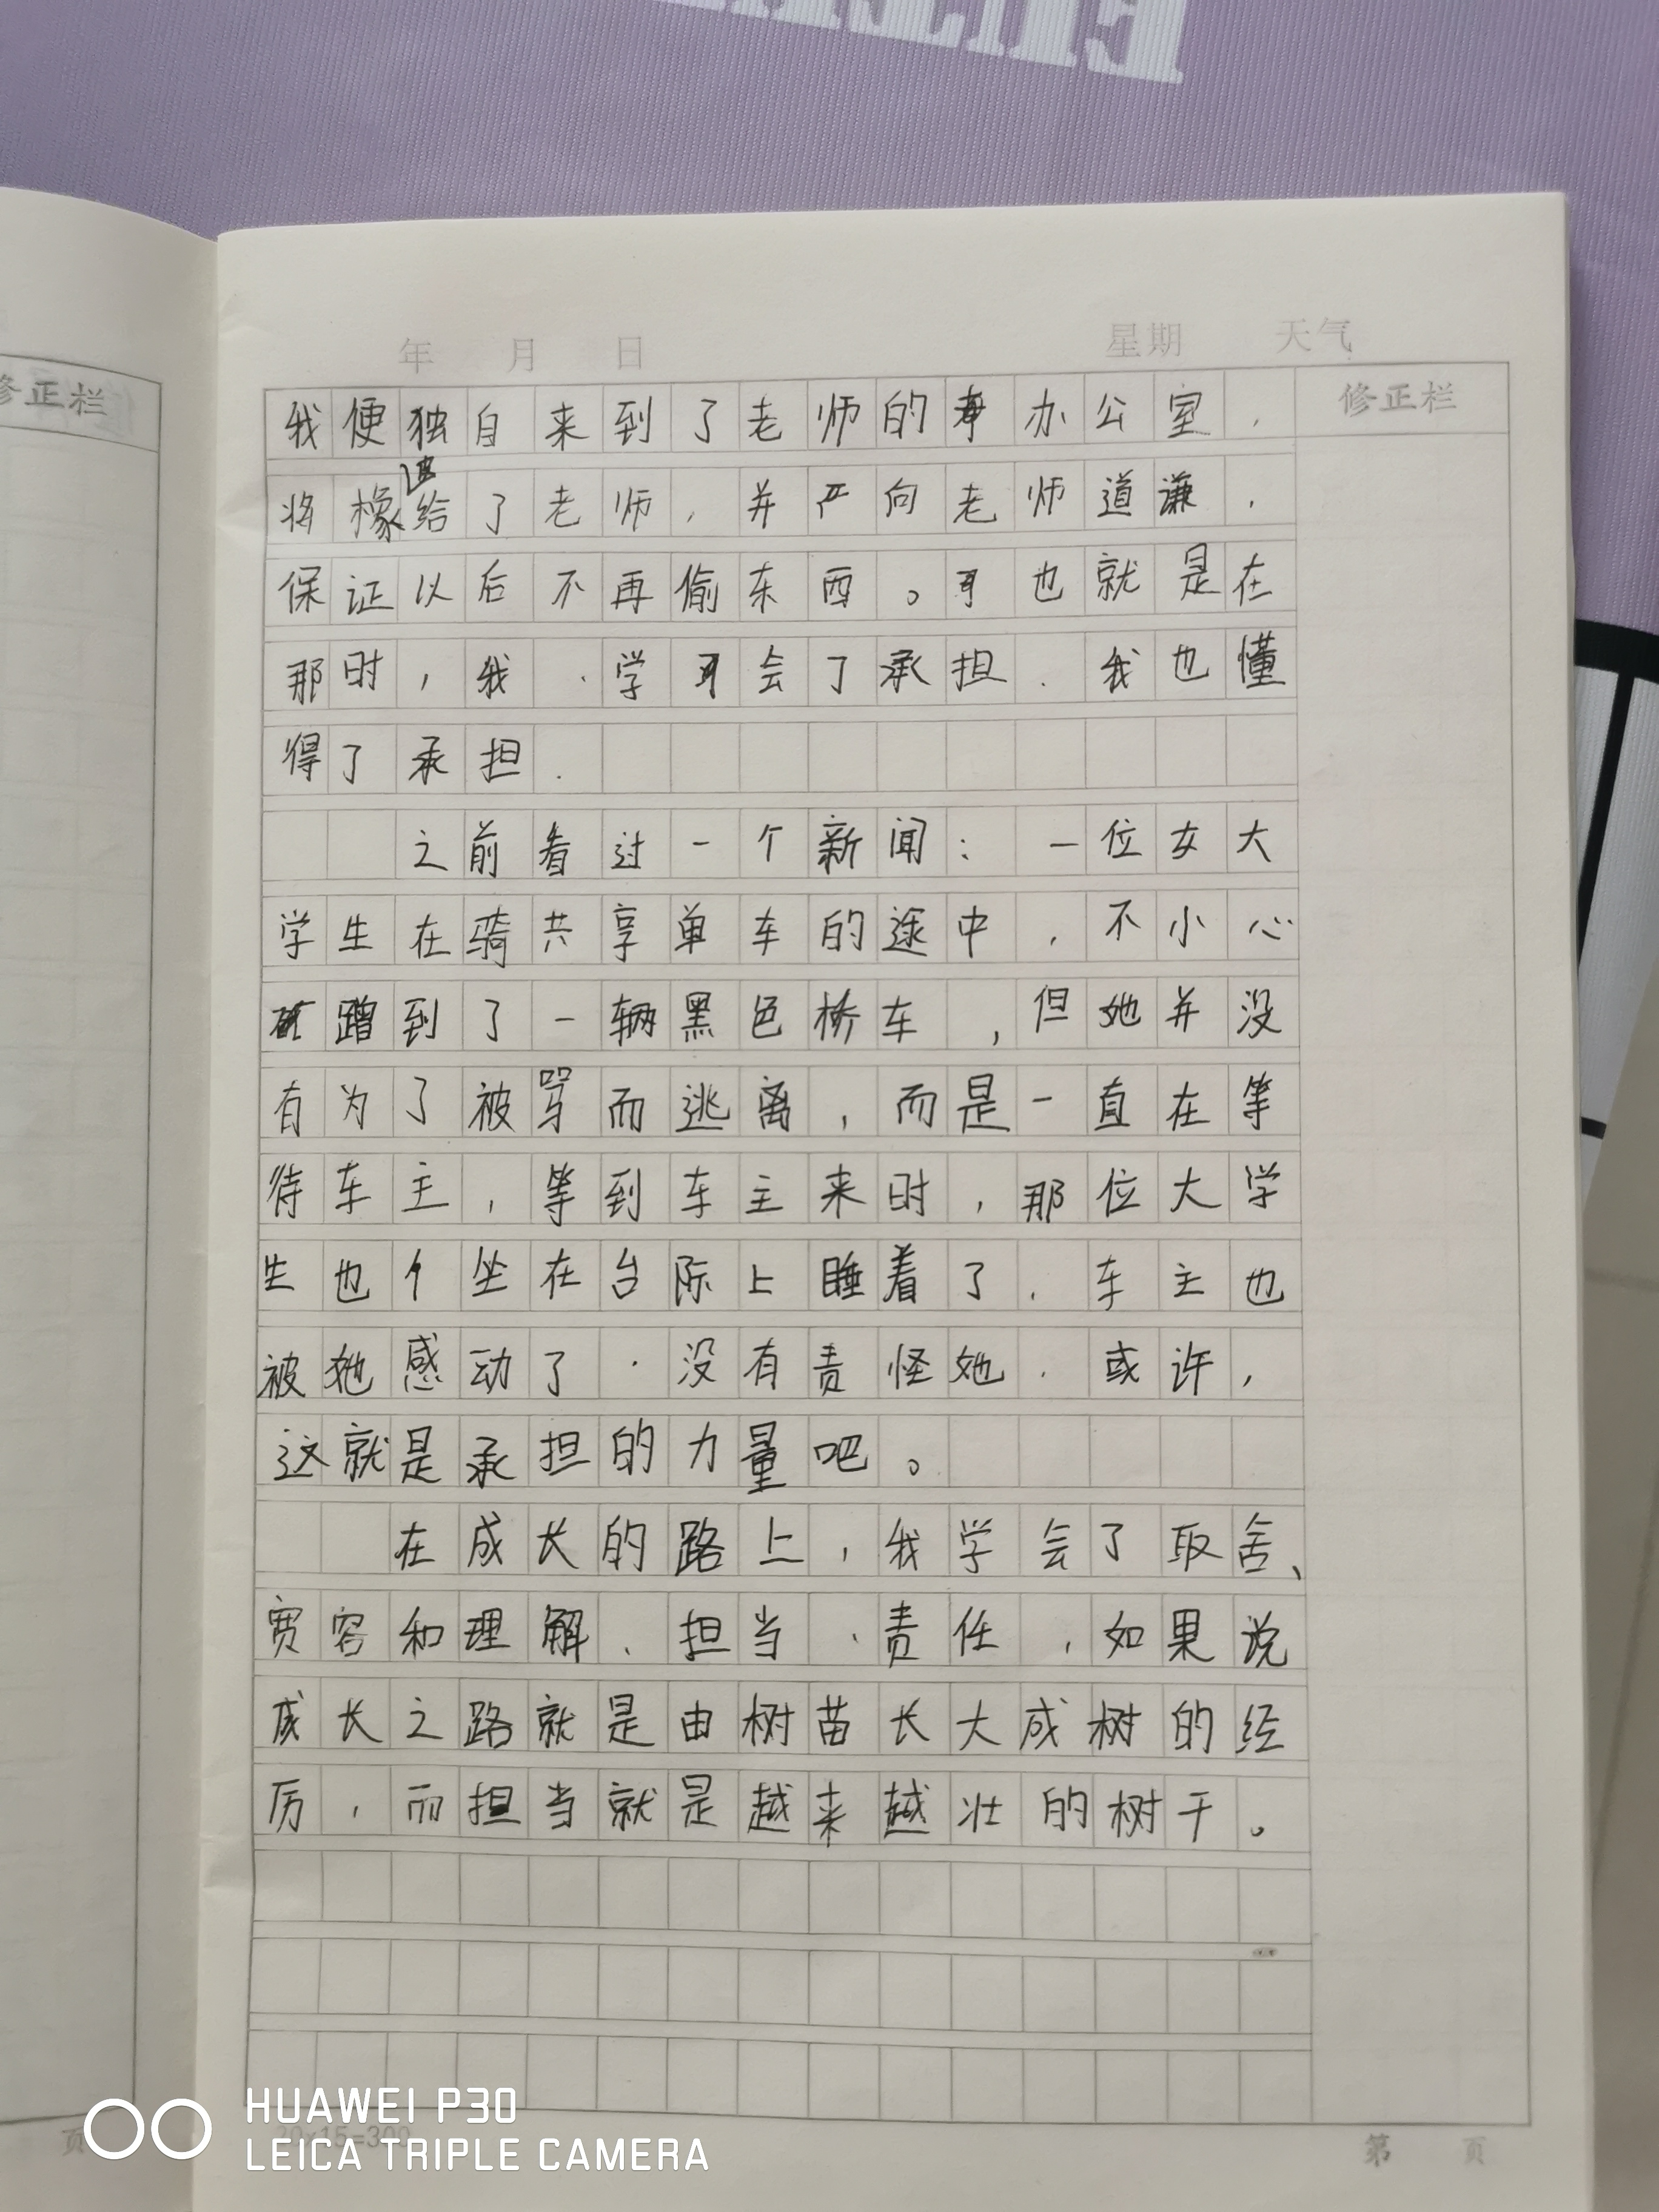 修正栏
年 月 日 星期 天气
修正栏
我便独自来到了老师的办公室，
将橡皮给了老师，并向老师道谦，
保证以后不再偷东西。也就是在
那时，我、学会了承担．我也懂
得了承担．
之前看过一个新闻：一位女大
学生在骑共享单车的途中，不小心
蹭到了一辆黑色桥车，但她并没
有为了被骂而逃离，而是一直在等
待车主，等到车主来时，那位大学
生也坐在台际上睡着了．车主也
被她感动了．没有责怪她．或许，
这就是承担的力量吧。
在成长的路上，我学会了取舍、
宽容和理解、担当、责任，如果说
成长之路就是由树苗长大成树的经
厉，而担当就是越来越壮的树干。
20×15=300
第 页
页
HUAWEI P30
LEICA TRIPLE CAMERA